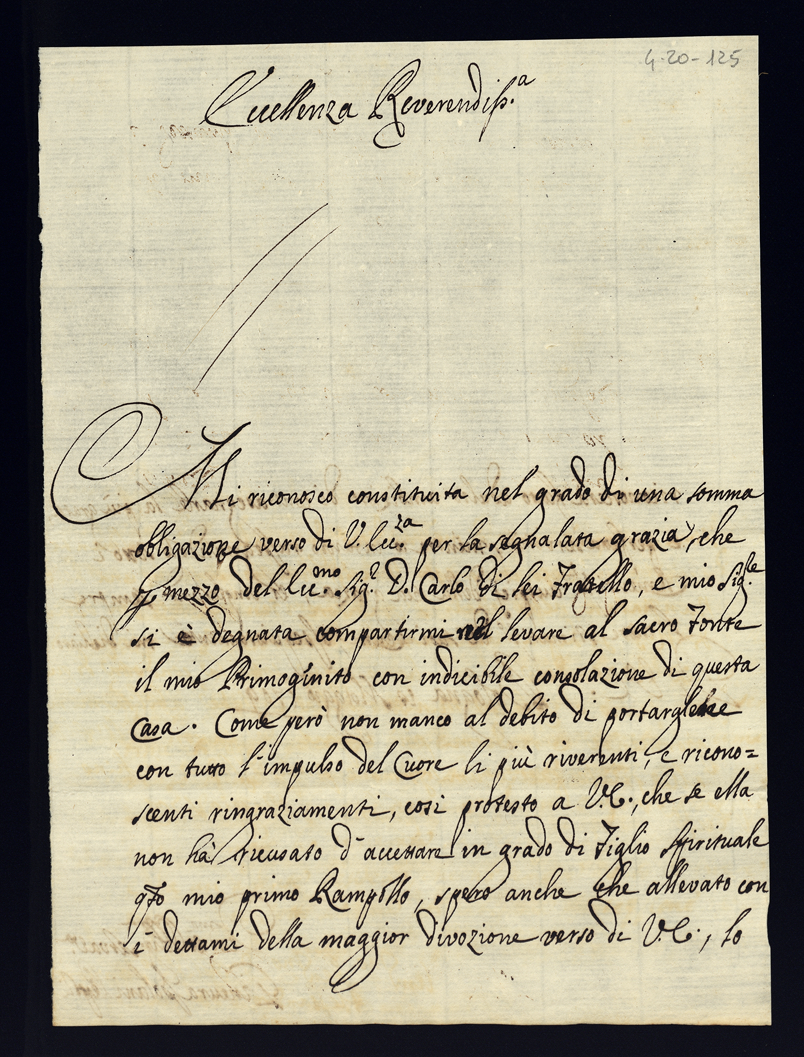 4.20-125
Eccellenza Reverendiss.a
Mi riconosco constituita nel grado di una somma
obbligazione verso di V. Ecc.za per la segnalata grazia, che
p mezzo del Ecc.mo Sig.r D. Carlo di lei Fratello, e mio Sig.re
si è degnata compartirmi nel levare al sacro Fonte
il mio Primoginito con indicibile consolazione di questa
Casa. Come però non manco al debito di portarglene
con tutto l'impulso del Cuore li più riverenti, e ricono=
scenti ringraziamenti, così protesto a V.E., che se ella
non hà ricusato d'accettare in grado di Figlio Spirituale
qto mio primo Rampollo, spero anche che allevato con
i dettami della maggior divozione verso di V.E., lo